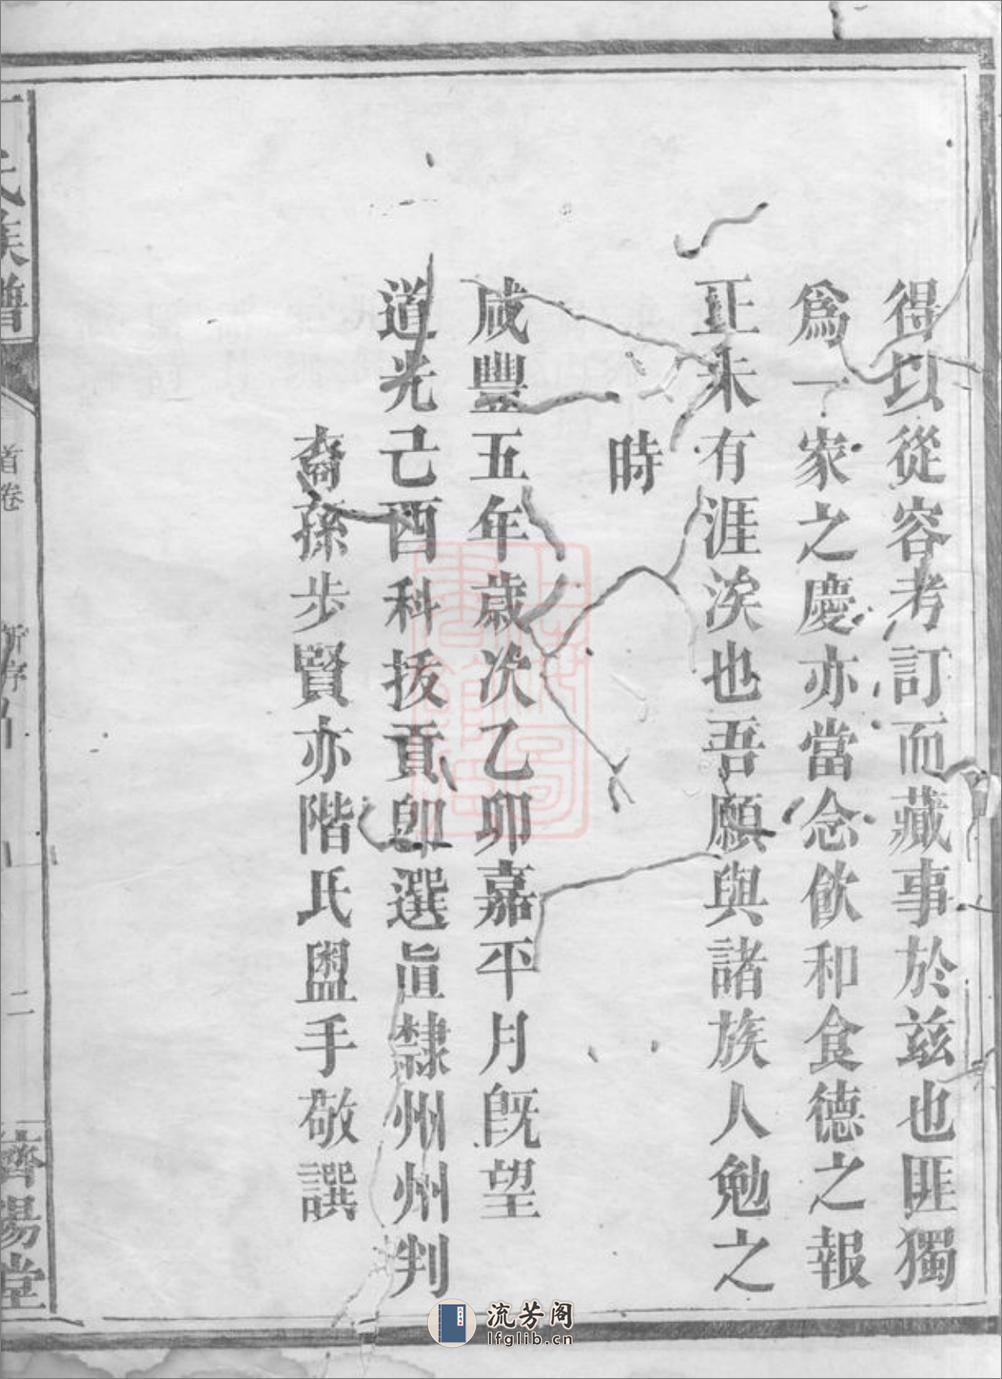 得以從容考訂而藏事於茲也匪獨
爲一家之慶亦當念飲和食德之報
正未有涯涘也吾願與諸族人勉之
時
咸豐五年歲次乙卯嘉平月既望
道光己酉科拔貢即選直隸州州判
裔孫步賢亦階氏盥手敬譔
氏族譜
首卷
新序
二
濟陽堂
流芳阁
lfglib.cn